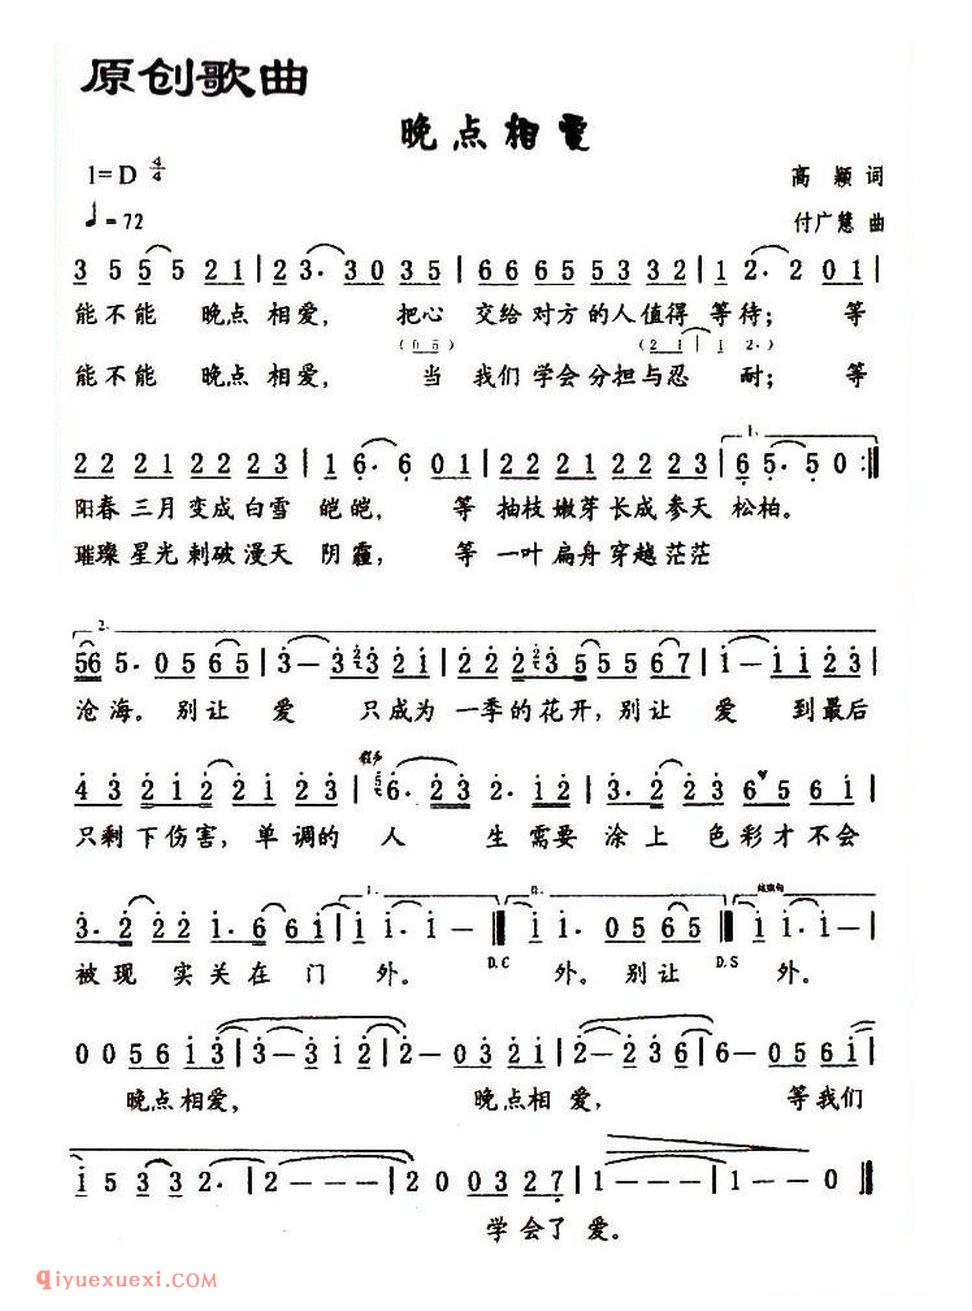 原创歌曲
晚点相爱
1=D 4/4
高颖 词
♩=72
付广慧 曲
3 5 5 5 2 1 | 2 3. 3 0 3 5 | 6 6 6 5 5 3 3 2 | 1 2. 2 0 1 |
能不能 晚点相爱, 把心 交给对方的人值得 等待; 等
(0 5) (2 1 | 1 2.)
能不能 晚点相爱, 当 我们学会分担与忍 耐; 等
1.
2 2 2 1 2 2 2 3 | 1 6. 6 0 1 | 2 2 2 1 2 2 2 3 | 6 5. 5 0 :‖
阳春三月变成白雪 皑皑, 等 抽枝嫩芽长成参天 松柏。
璀璨星光刺破漫天 阴霾, 等 一叶扁舟穿越茫茫
2.
5 6 5. 0 5 6 5 | 3 — 3 2 3 2 1 | 2 2 2 2 2 3 5 5 5 6 7 | 1 — 1 1 2 3 |
沧海。别让 爱 只成为 一季的花开,别让 爱 到最后
4 3 2 1 2 2 1 2 3 | 5 6. 2 3 2. 1 2 | 3. 2 3 2 3 6 5 6 1 |
只剩下伤害,单调的 人 生需要 涂上 色彩才不会
1. 2. 结束句
3. 2 2 2 1. 6 6 1 | 1 1. 1 — ‖ 1 1. 0 5 6 5 ‖ 1 1. 1 — |
D.C D.S
被现 实关在门 外。 外。别让 外。
0 0 5 6 1 3 | 3 — 3 1 2 | 2 — 0 3 2 1 | 2 — 2 3 6 | 6 — 0 5 6 1 |
晚点相爱, 晚点相爱, 等我们
1 5 3 3 2. | 2 — — — | 2 0 0 3 2 2 7 | 1 — — — | 1 — — 0 ‖
学会了爱。
qiyuexuexi.COM